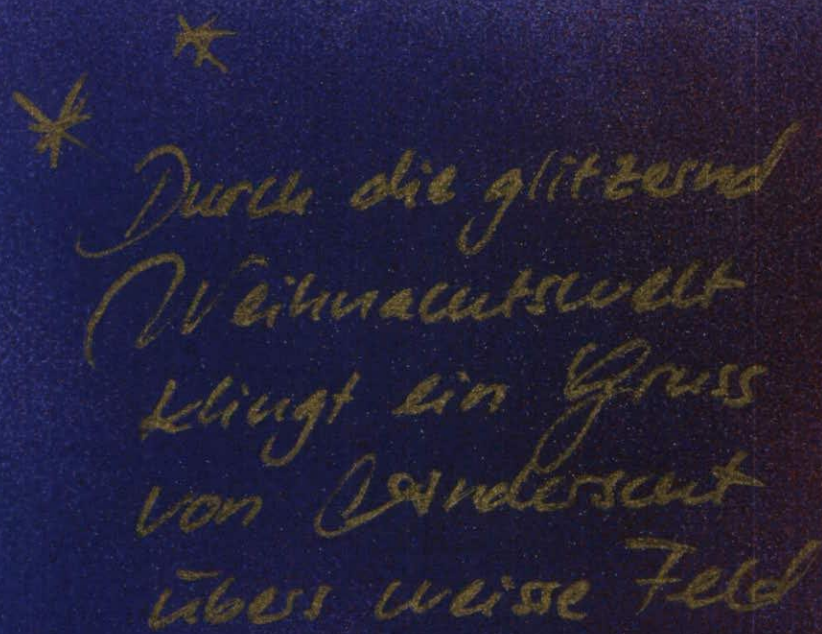 Durch die glitzernd
Weihnachtswelt
klingt ein Gruss
von
übers weisse Feld